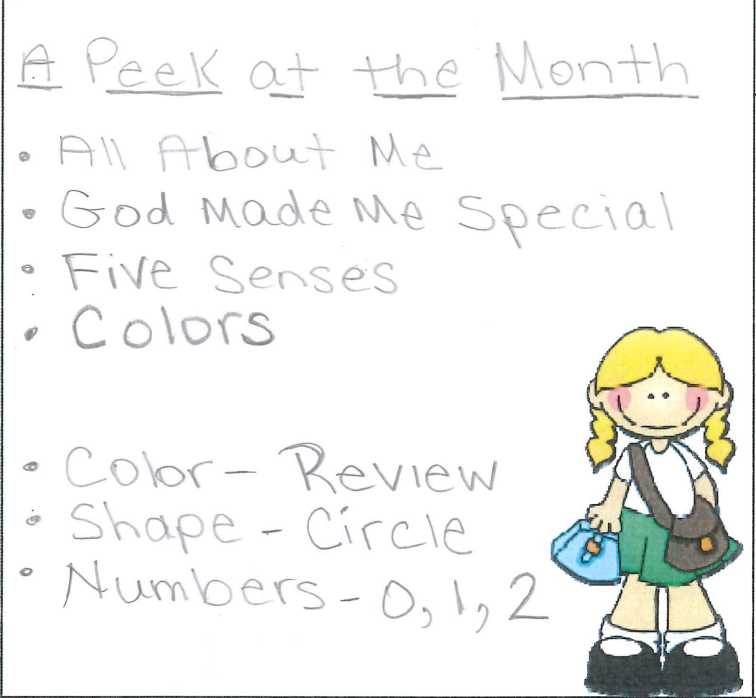 A Peek at the Month
• All About Me
• God Made Me Special
• Five Senses
• Colors
• Color - Review
• Shape - Circle
• Numbers - 0, 1, 2